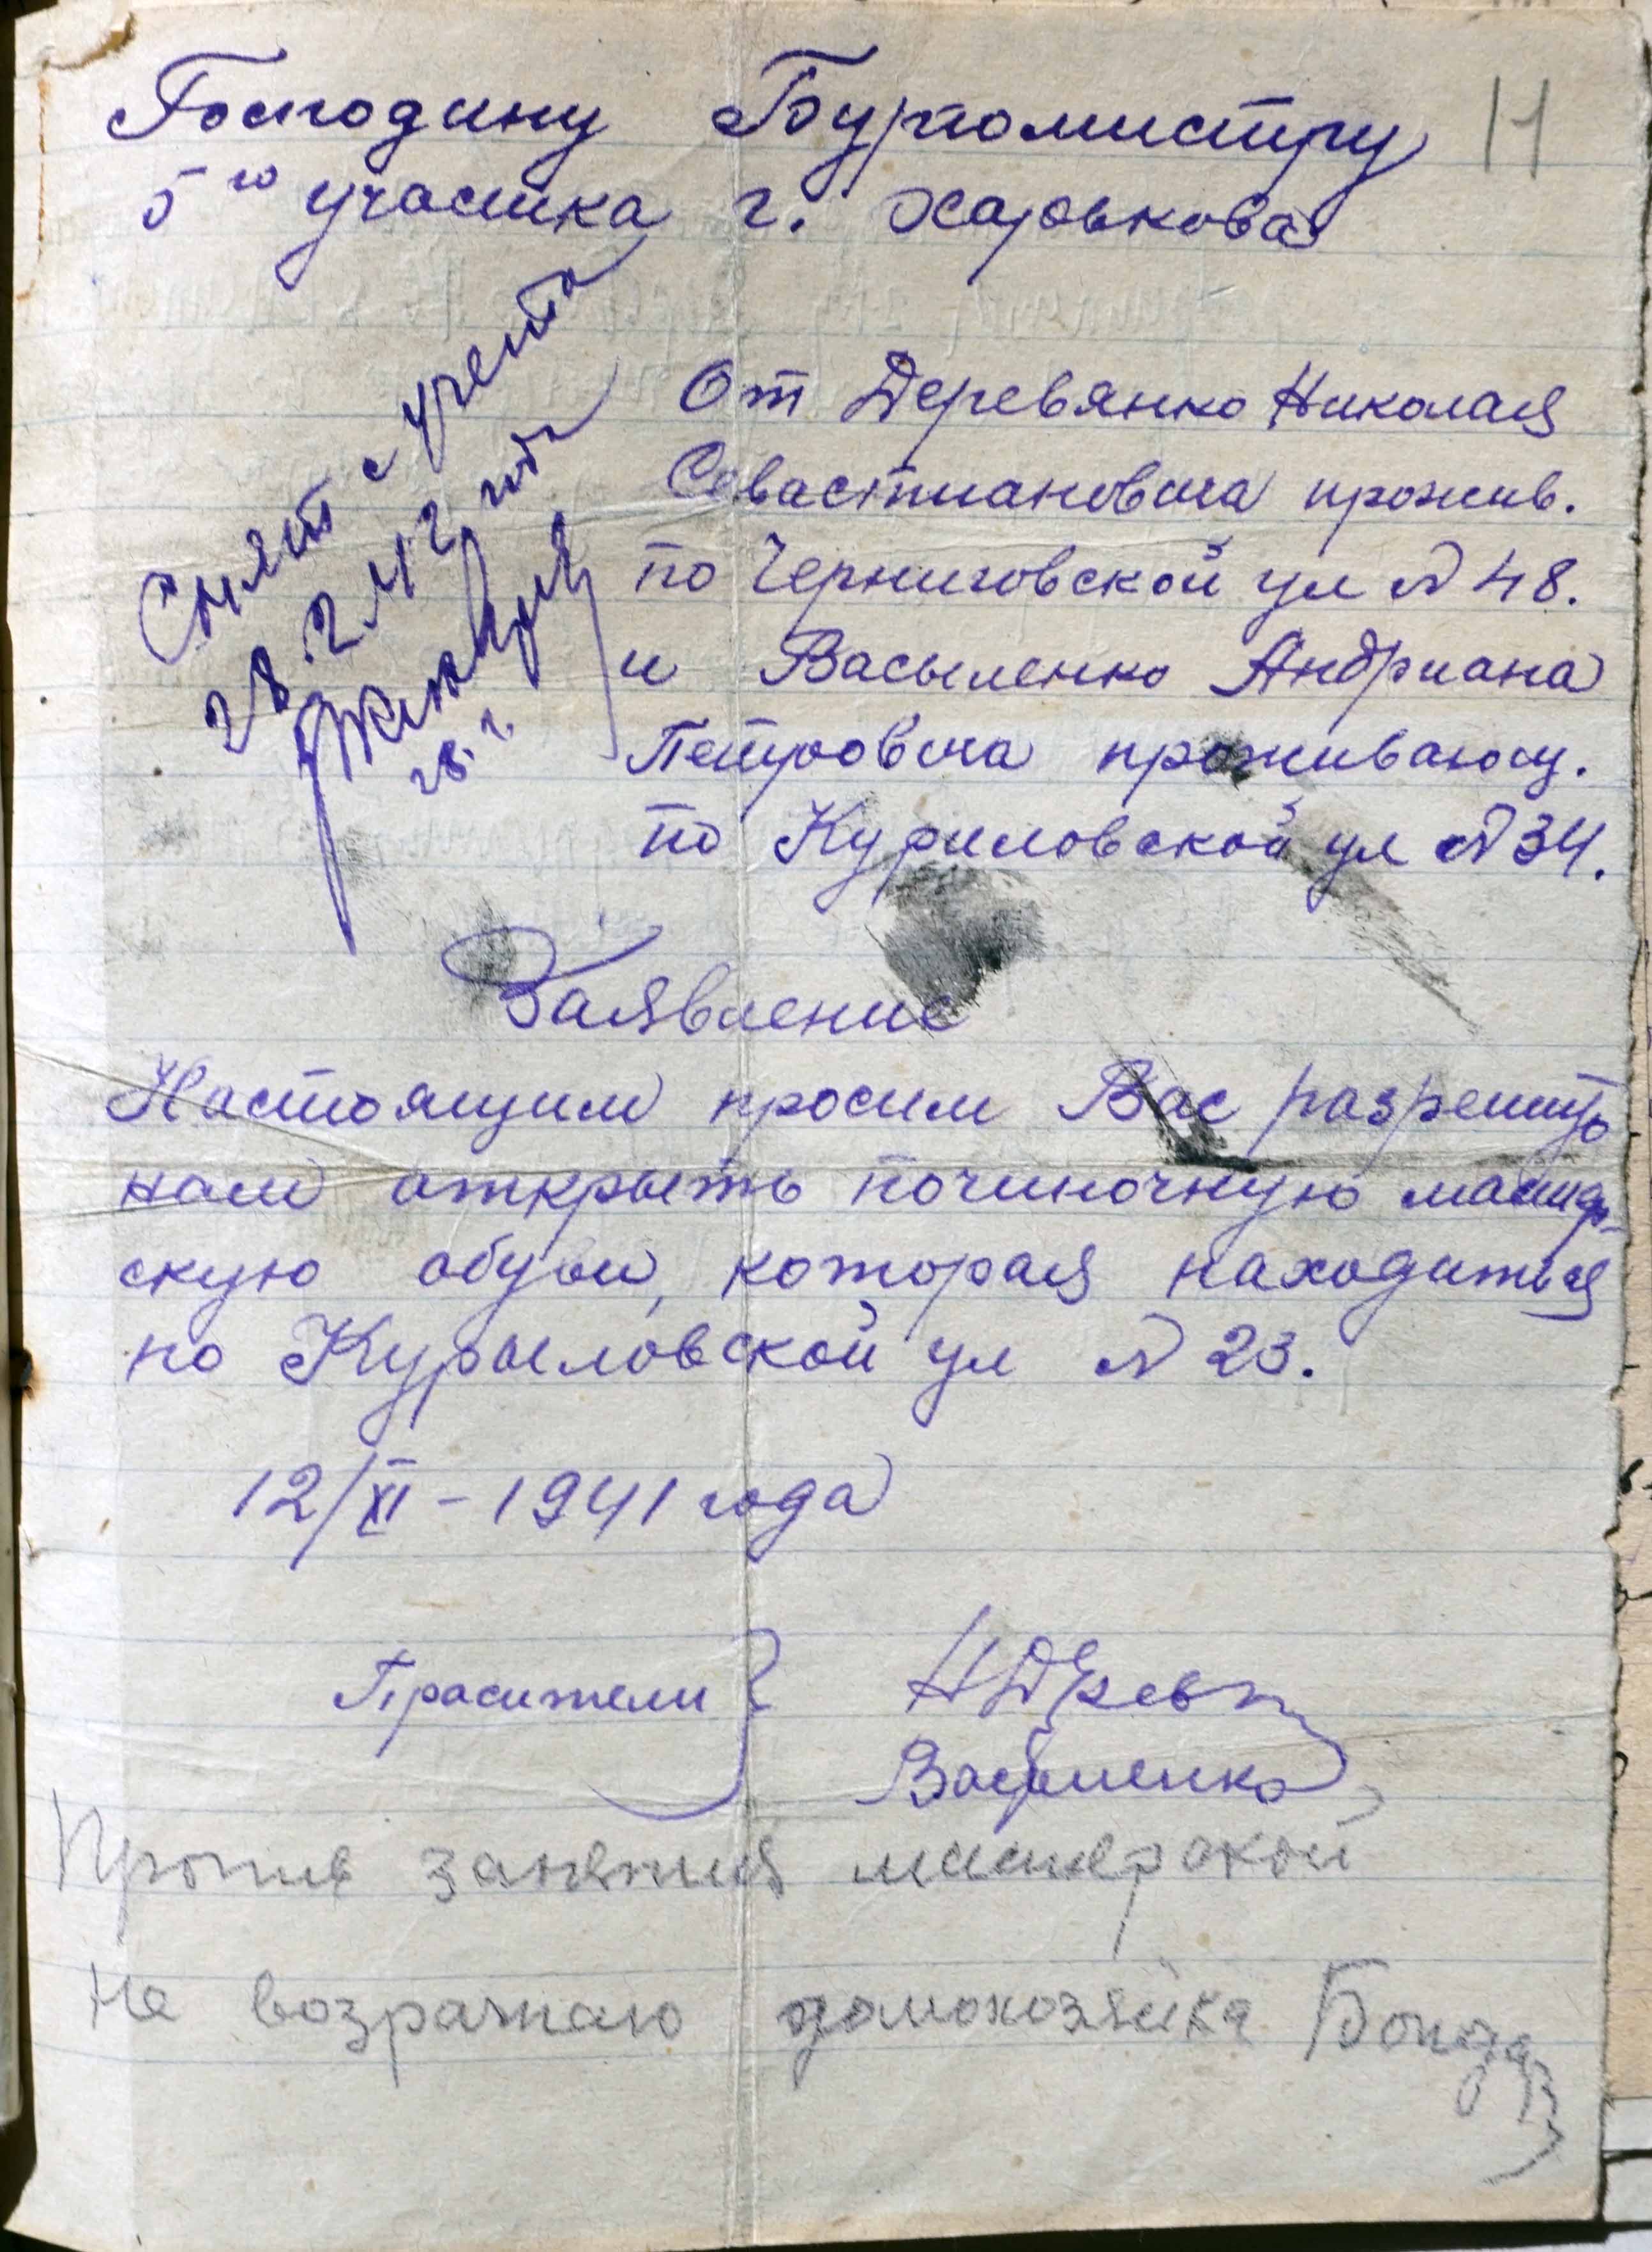 Господину Бургомистру
11
5го участка г. Харькова
Снят с учета
28.2.42 года
28. 2.
От Деревянко Николая
Севастиановича прожив.
по Черниговской ул N 48.
и Васыленко Андриана
Петровича проживающ.
по Куриловской ул N 34.
Заявление
Настоящим просим Вас разрешить
нам открыть починочную мастер-
скую обуви, которая находиться
по Курыловской ул N 23.
12/XI - 1941 года
Просители
Васыленко
Против занятия мастерской
не возражаю домохозяйка Бондар